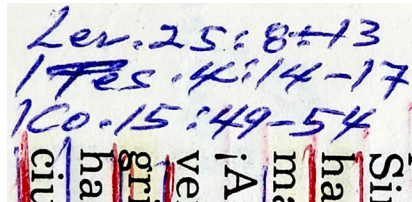 Lev. 25:8-13
1 Tes. 4:14-17
1Co. 15:49-54
Sin
ha
ma
¡A
ve
gri
ha
ciu